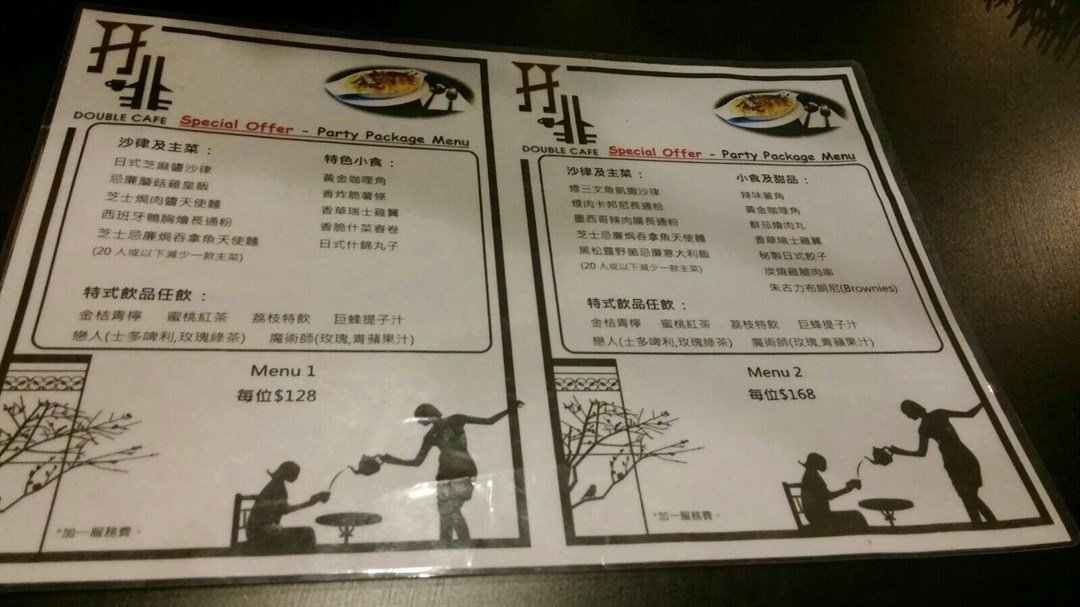 DOUBLE CAFE Special Offer - Party Package Menu
沙律及主菜：
日式芝麻醬沙律
忌廉蘑菇雞皇飯
芝士焗肉醬天使麵
西班牙鴨胸燴長通粉
芝士忌廉焗吞拿魚天使麵
(20 人或以下減少一款主菜)
特色小食：
黃金咖哩角
香炸脆薯條
香草瑞士雞翼
香脆什菜春卷
日式什錦丸子
特式飲品任飲：
金桔青檸 蜜桃紅茶 荔枝特飲 巨蜂提子汁
戀人(士多啤利,玫瑰綠茶) 魔術師(玫瑰,青蘋果汁)
Menu 1
每位$128
*加一服務費。
DOUBLE CAFE Special Offer - Party Package Menu
沙律及主菜：
煙三文魚凱撒沙律
煙肉卡邦尼長通粉
墨西哥辣肉腸長通粉
芝士忌廉焗吞拿魚天使麵
黑松露野菌忌廉意大利飯
(20 人或以下減少一款主菜)
小食及甜品：
辣味薯角
黃金咖哩角
鮮茄燴肉丸
香草瑞士雞翼
秘製日式餃子
炭燒雞腿肉串
朱古力布朗尼(Brownies)
特式飲品任飲：
金桔青檸 蜜桃紅茶 荔枝特飲 巨蜂提子汁
戀人(士多啤利,玫瑰綠茶) 魔術師(玫瑰,青蘋果汁)
Menu 2
每位$168
*加一服務費。